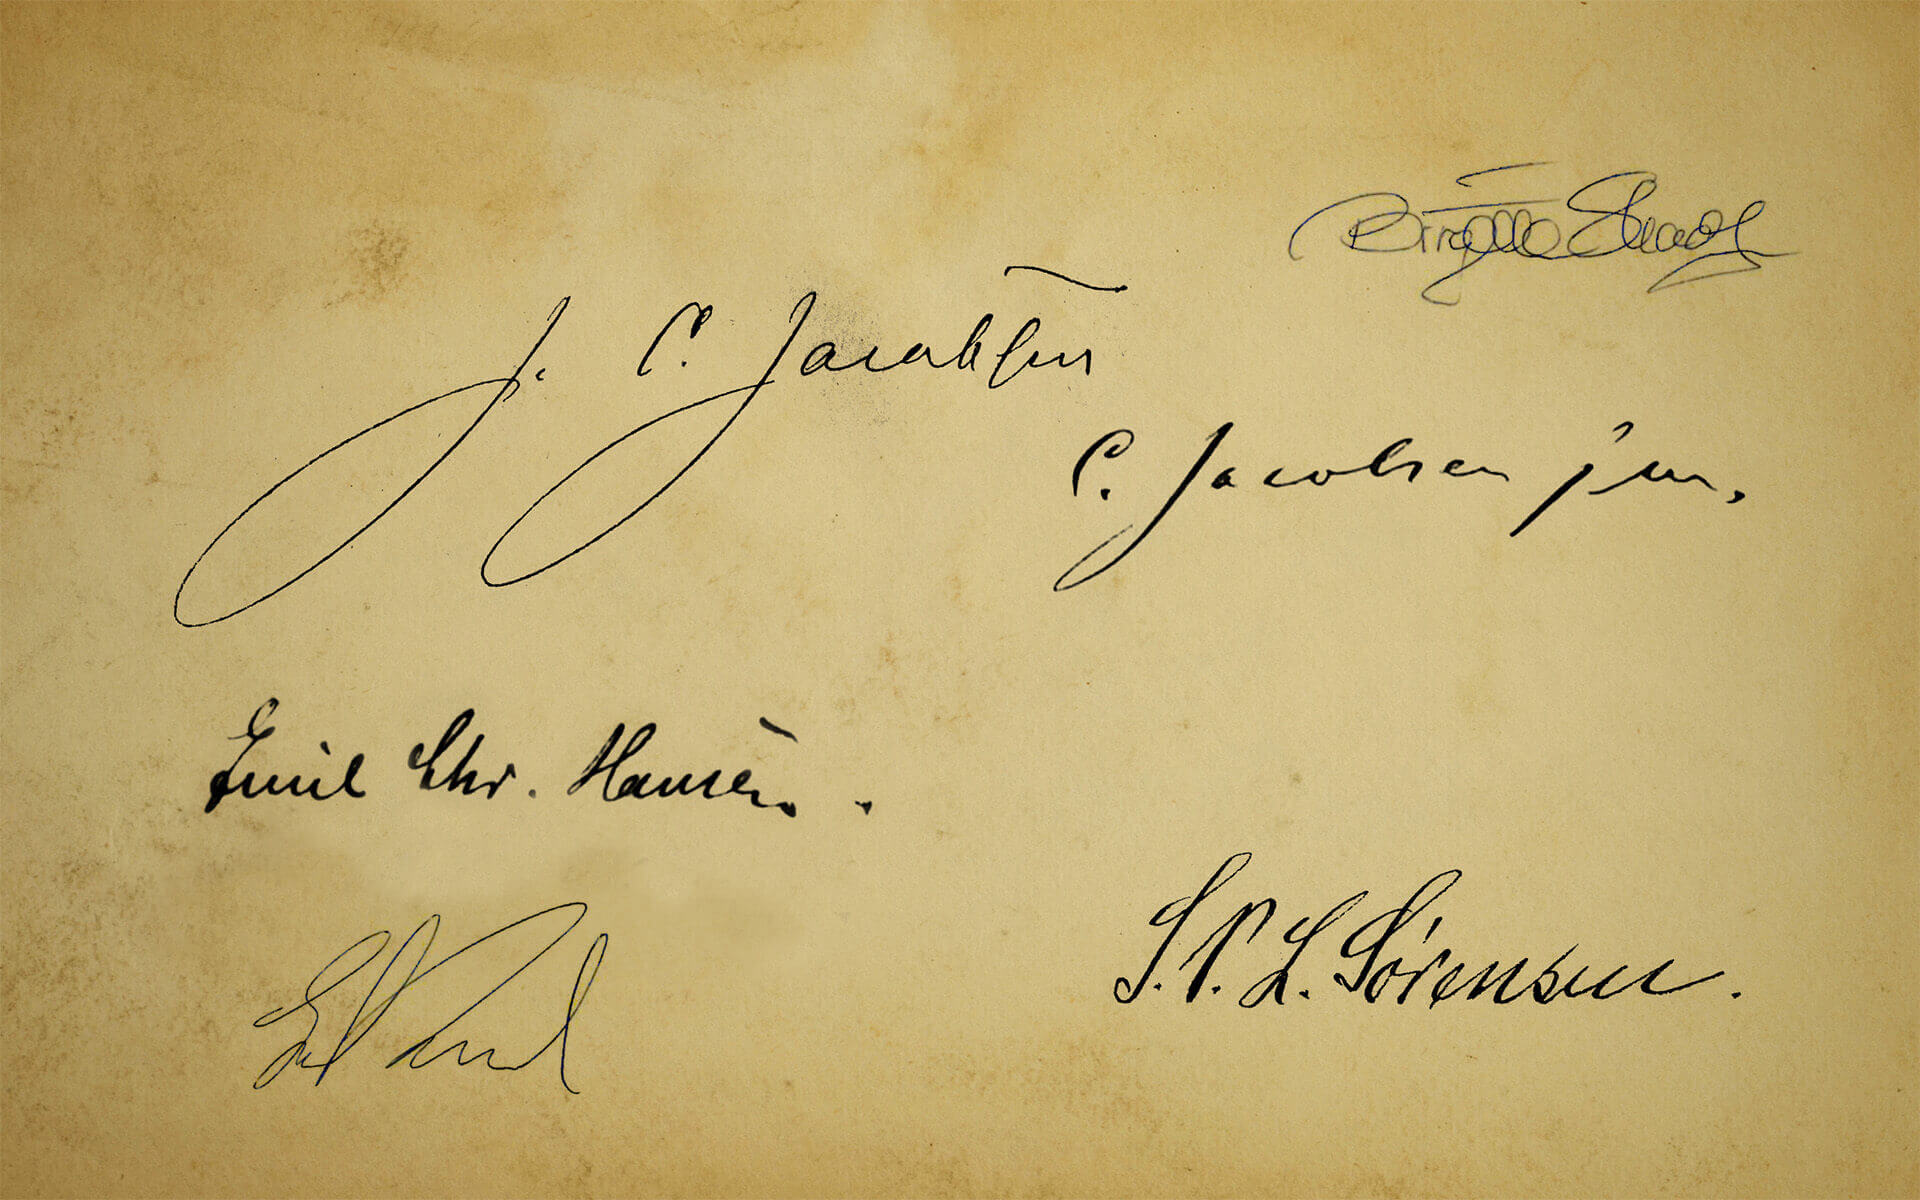 Birgitte Skadhauge
J. C. Jacobsen
C. Jacobsen jun.
Emil Chr. Hansen.
S. P. L. Sørensen.